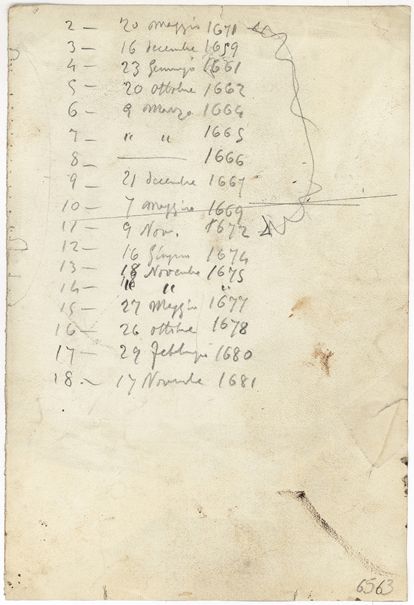 2 - 20 Maggio 1671
3 - 16 decembre 1659
4 - 23 Gennajo 1661
5 - 20 ottobre 1662
6 - 9 Marzo 1664
7 - " " 1665
8 - 1666
9 - 21 decembre 1667
10 - 7 Maggio 1669
11 - 9 Nov. 1672
12 - 16 Giugno 1674
13 - 18 Novembre 1675
14 - " " "
15 - 27 Maggio 1677
16 - 26 ottobre 1678
17 - 29 Febbrajo 1680
18 - 17 Novembre 1681
6563